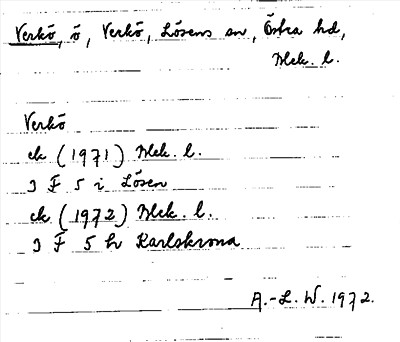 Verkö, ö, Verkö, Lösens sn, Östra hd,
Blek. l.
Verkö
ek (1971) Blek. l.
3 F 5 i Lösen
ek (1972) Blek. l.
3 F 5 h Karlskrona
A.-L. W. 1972.